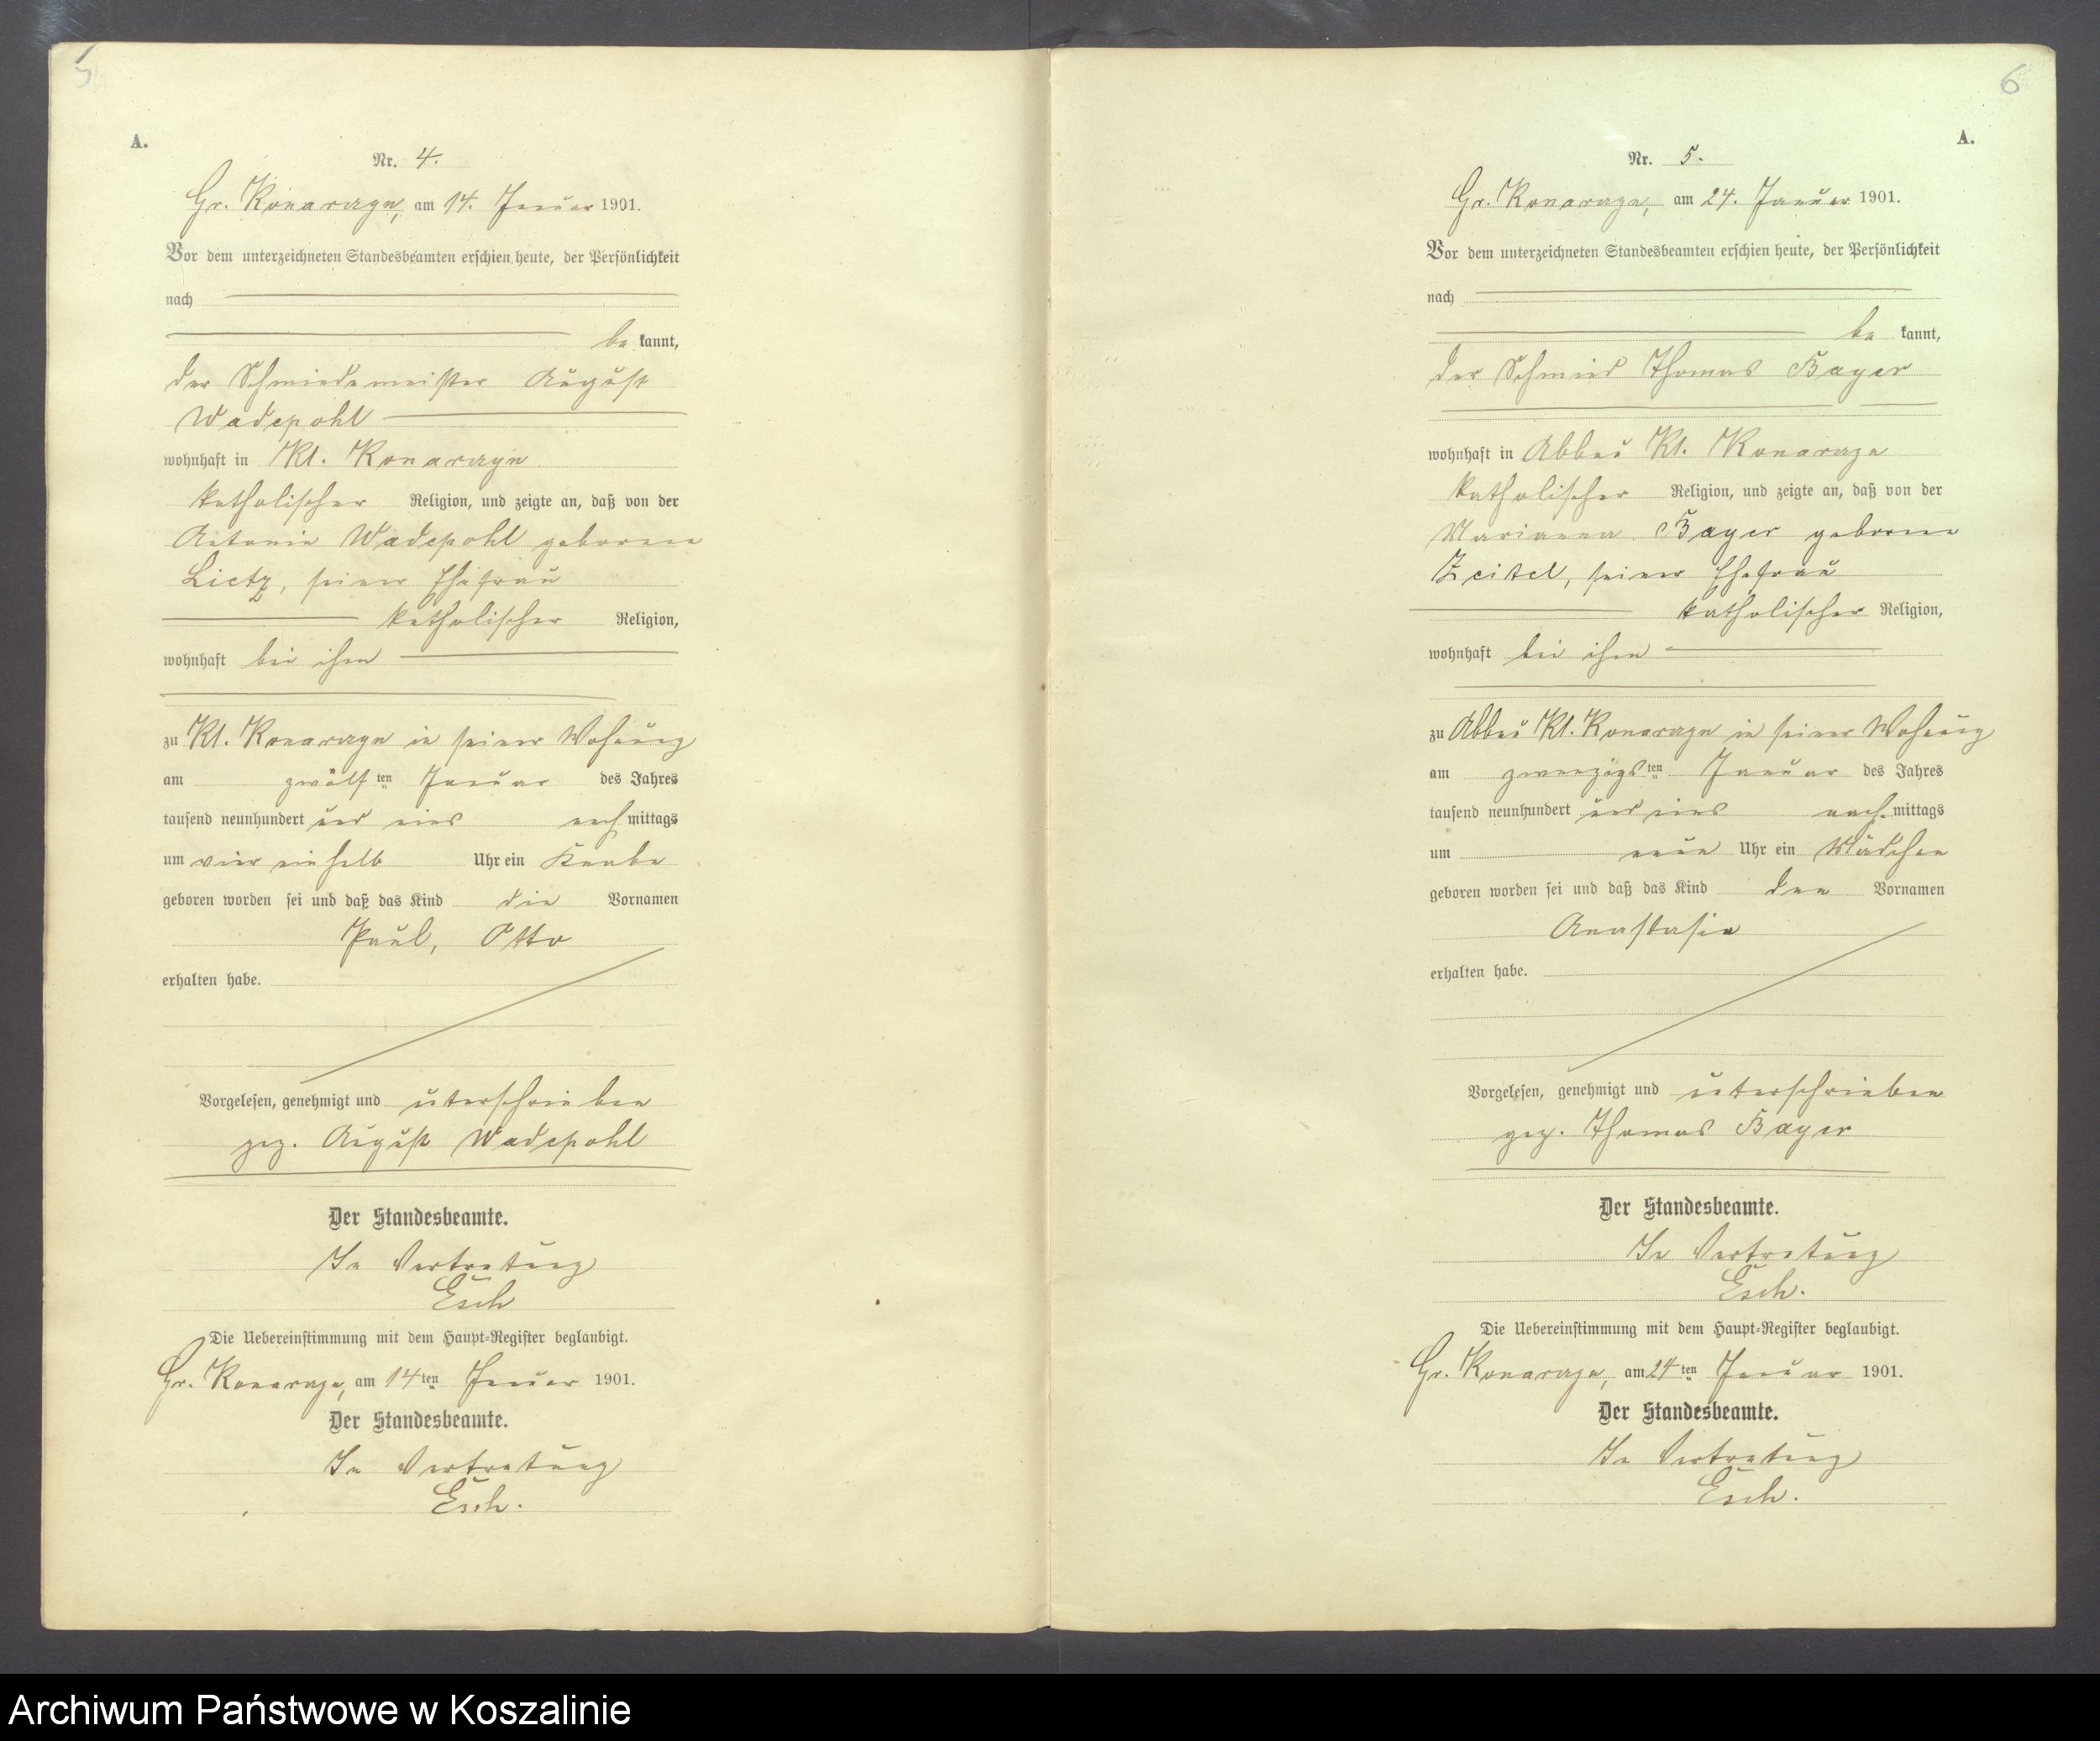 5
A.
Nr. 4.
Gr. Konarczyn, am 14. Januar 1901.
Vor dem unterzeichneten Standesbeamten erschien heute, der Persönlichkeit
nach
be kannt,
der Schmiedemeister August
Wadepohl
wohnhaft in Kl. Konarczyn
katholischer Religion, und zeigte an, daß von der
Antonie Wadepohl geborene
Lietz, seiner Ehefrau
katholischer Religion,
wohnhaft bei ihm
zu Kl. Konarczyn in seiner Wohnung
am zwölf ten Januar des Jahres
tausend neunhundert und eins nach mittags
um vier ein halb Uhr ein Knabe
geboren worden sei und daß das Kind die Vornamen
Paul, Otto
erhalten habe.
Vorgelesen, genehmigt und unterschrieben
gez. August Wadepohl
Der Standesbeamte.
In Vertretung
Esch
Die Uebereinstimmung mit dem Haupt=Register beglaubigt.
Gr. Konarczyn, am 14 ten Januar 1901.
Der Standesbeamte.
In Vertretung
Esch.
6
A.
Nr. 5.
Gr. Konarczyn, am 24. Januar 1901.
Vor dem unterzeichneten Standesbeamten erschien heute, der Persönlichkeit
nach
be kannt,
der Schmied Thomas Bayer
wohnhaft in Abbau Kl. Konarczyn
katholischer Religion, und zeigte an, daß von der
Marianna Bayer geborene
Zeitel, seiner Ehefrau
katholischer Religion,
wohnhaft bei ihm
zu Abbau Kl. Konarczyn in seiner Wohnung
am zwanzigs ten Januar des Jahres
tausend neunhundert und eins nach mittags
um neun Uhr ein Mädchen
geboren worden sei und daß das Kind den Vornamen
Anastasia
erhalten habe.
Vorgelesen, genehmigt und unterschrieben
gez. Thomas Bayer
Der Standesbeamte.
In Vertretung
Esch.
Die Uebereinstimmung mit dem Haupt=Register beglaubigt.
Gr. Konarczyn, am 24 ten Januar 1901.
Der Standesbeamte.
In Vertretung
Esch.
Archiwum Państwowe w Koszalinie